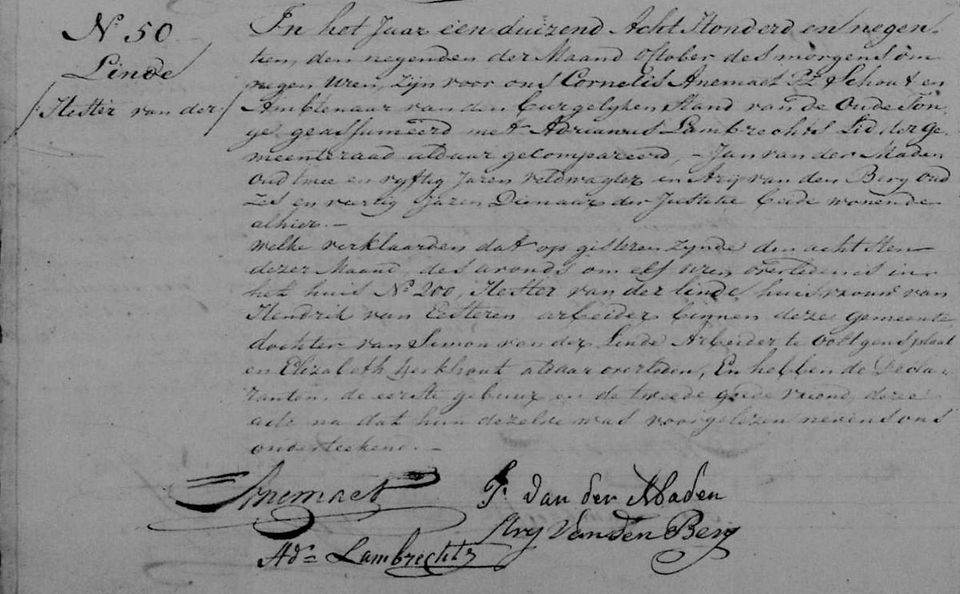 N.º 50
Linde
/Hester van der/
In het Jaar een duizend Acht Honderd en negen-
tien, den negenden der Maand October des morgens om
negen Uren, zijn voor ons Cornelis Anemaet Pz Schout en
Ambtenaar van den burgelyken Stand van de Oude Ton-
ge geassumeerd met Adrianus Lambrechts Lid der ge-
meenteraad aldaar gecompareerd, - Jan van der Maden
oud twee en vyftig Jaren veldwagter en Arij van den Berg oud
zes en veertig Jaren Dienaar der Justitie beide wonende
alhier. -
welke verklaarden dat op gisteren zynde den achtsten
dezer Maand, des avonds om elf uren overleden is in
het huis N.º 200, Hester van der linde, huisvrouw van
Hendrik van Eesteren arbeider binnen deze gemeente,
dochter van Simon van der Linde Arbeider te Ooltgensplaat
en Elizabeth Kerkhout aldaar overleden, En hebben de Decla-
ranten, de eerste gebuur en de tweede goede vriend, deze
acte na dat hun dezelve was voorgelezen nevens ons
onderteekend. -
Anemaet
J. van der Maden
Arij Van den Berg
Ads Lambrechts